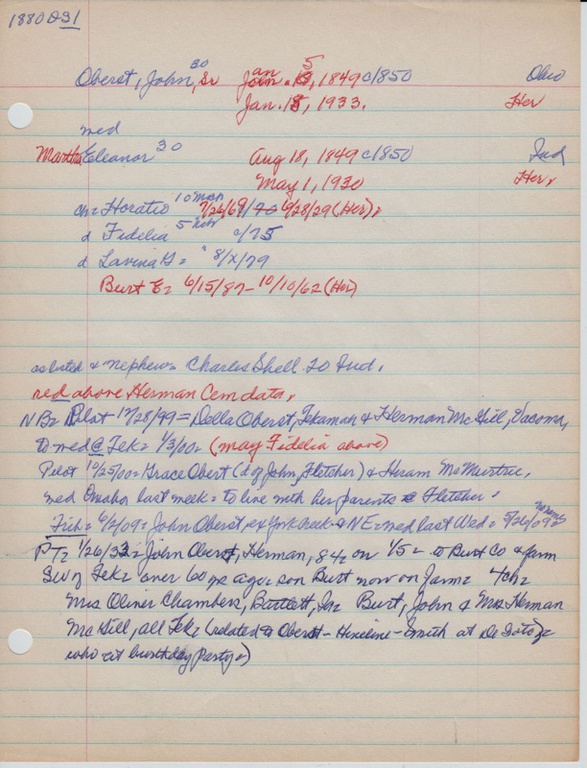 1880 @31
Oberst, John, Sr 30 Jan. 5, 1849 c/850 Ohio
Jan. 15, 1933. Her
med
Martha Eleanor 30 Aug 18, 1849 c/850 Ind
May 1, 1930 Her.
ch= Horatio 10 mch 7/26/69/70 6/28/29 (Her).
d Fidelia 5 Neb c/75
d Lavina G= " 8/x/79
Burt E= 6/15/87- 10/10/62 (Her)
as listed & nephew= Charles Shell 20 Ind.
red above Herman Cem data.
NB= Pilot 12/28/99= Della Oberst, Tekamah & Herman McGill, Tacoma,
to wed @ Tek= 1/3/00= (may Fidelia above)
Pilot 10/25/00= Grace Obert (d of John, Fletcher) & Hiram McMurtrie,
wed Omaha last week= to live with her parents @ Fletcher.
6/2/09= John Oberst, ex York Creek & NE= wed last Wed= 5/26/09=
PT= 1/26/33= John Oberst, Herman, 84= on 1/5= to Burt Co & farm
SW of Tek= over 60 yrs ago= son Burt now on farm= 4 ch=
Mrs Oliver Chambers, Bartlett, Burt, John & Mrs Herman
McGill, all Tek= (related to Oberst - Hineline - Smith at De Soto)=
who at birthday party=)